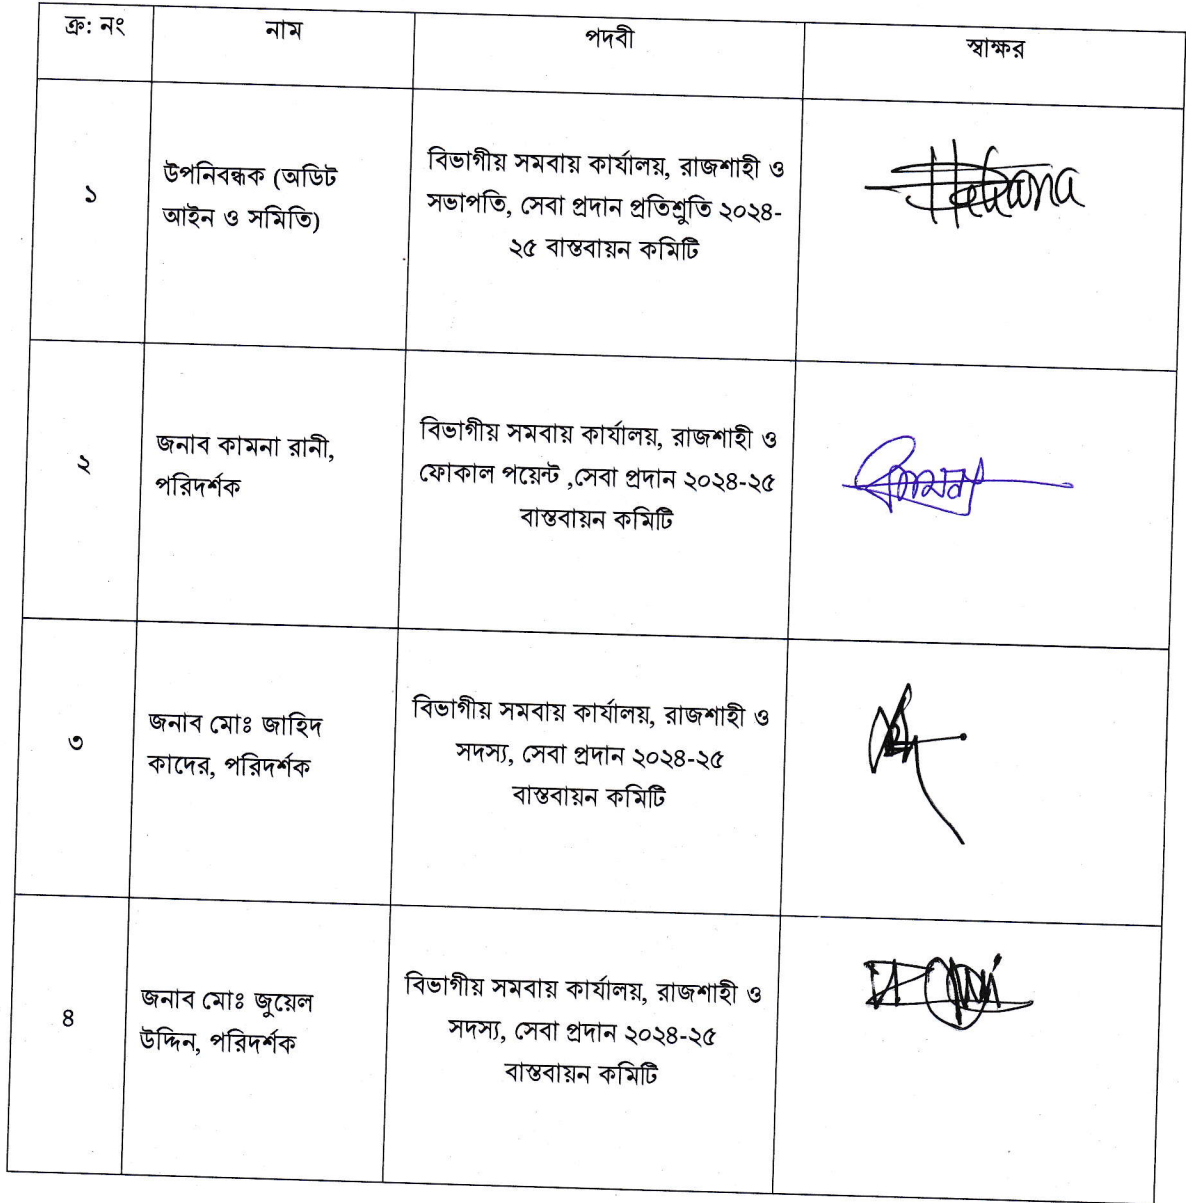 ক্র: নং
নাম
পদবী
স্বাক্ষর
১
উপনিবন্ধক (অডিট
আইন ও সমিতি)
বিভাগীয় সমবায় কার্যালয়, রাজশাহী ও
সভাপতি, সেবা প্রদান প্রতিশ্রুতি ২০২৪-
২৫ বাস্তবায়ন কমিটি
২
জনাব কামনা রানী,
পরিদর্শক
বিভাগীয় সমবায় কার্যালয়, রাজশাহী ও
ফোকাল পয়েন্ট ,সেবা প্রদান ২০২৪-২৫
বাস্তবায়ন কমিটি
৩
জনাব মোঃ জাহিদ
কাদের, পরিদর্শক
বিভাগীয় সমবায় কার্যালয়, রাজশাহী ও
সদস্য, সেবা প্রদান ২০২৪-২৫
বাস্তবায়ন কমিটি
৪
জনাব মোঃ জুয়েল
উদ্দিন, পরিদর্শক
বিভাগীয় সমবায় কার্যালয়, রাজশাহী ও
সদস্য, সেবা প্রদান ২০২৪-২৫
বাস্তবায়ন কমিটি